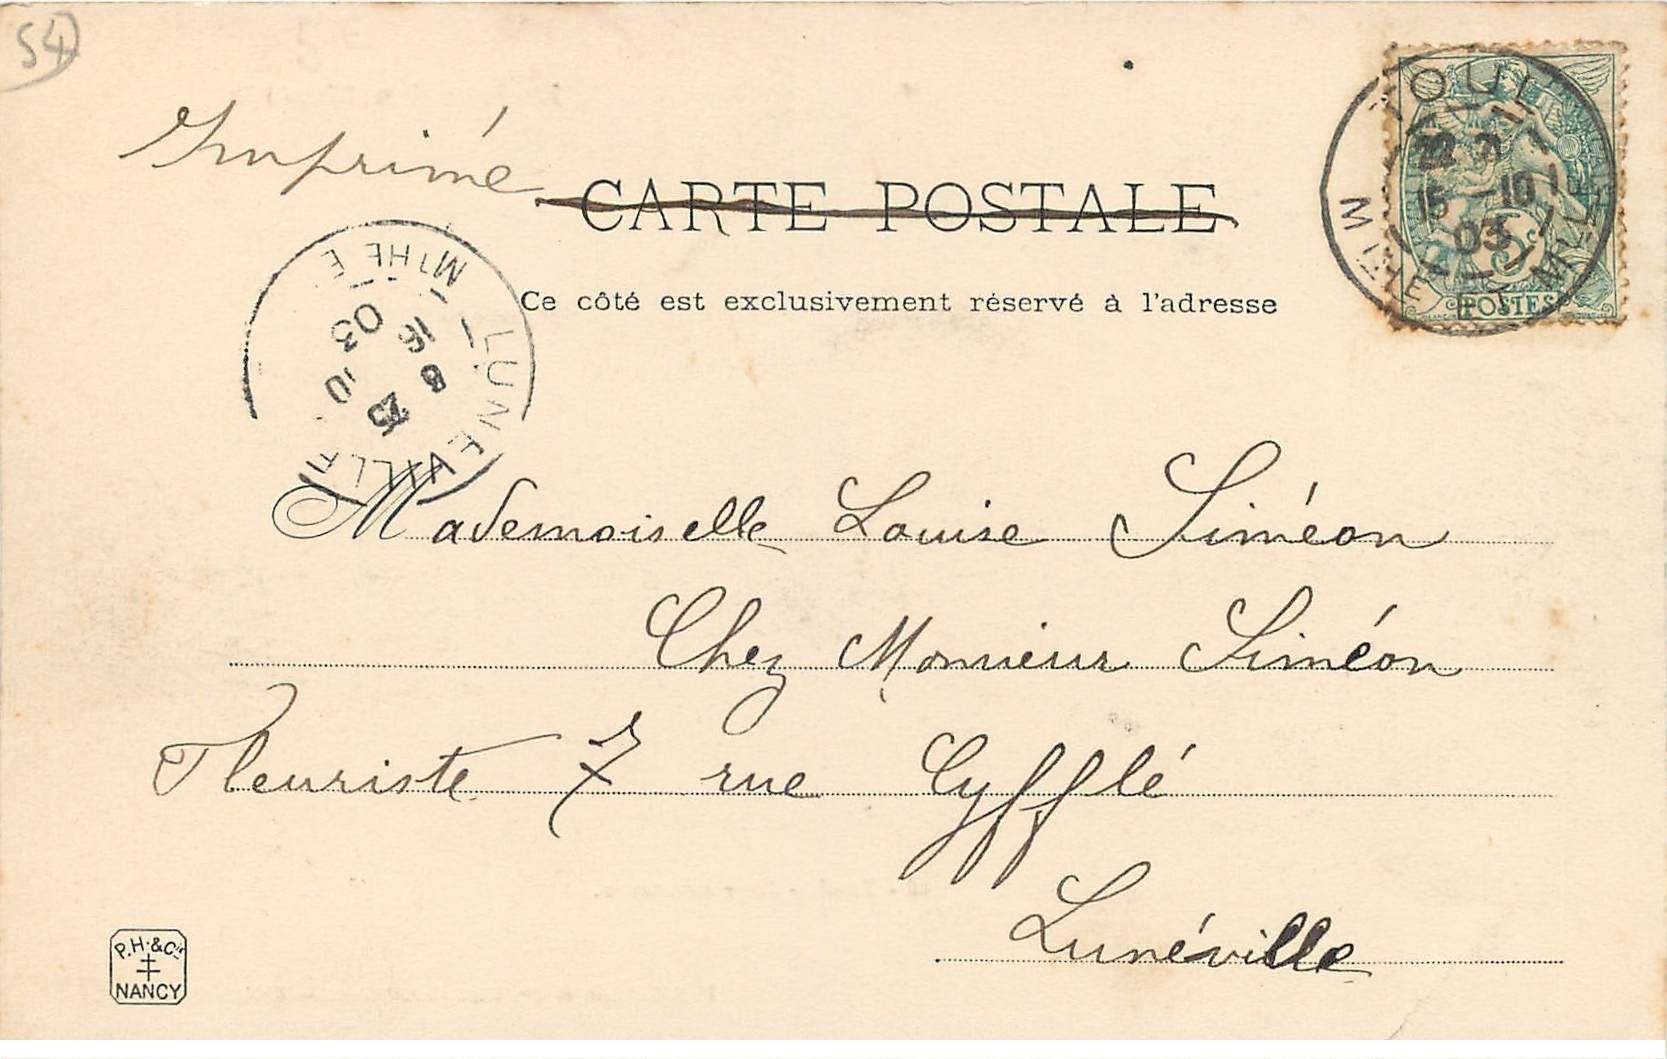 54
Imprimé
CARTE POSTALE
Ce côté est exclusivement réservé à l'adresse
TOUL
15 -10
03
MTHE ET MLLE
5
POSTES
LUNEVILLE
8
16 10
03
MTHE E
Mademoiselle Louise Siméon
Chez Monsieur Siméon
Fleuriste 7 rue Cyfflé
Lunéville
P.H. & Cie
NANCY